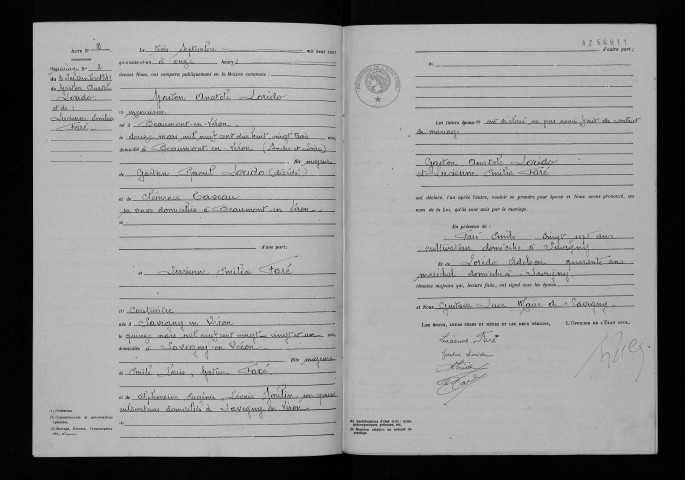 ACTE N° 2
Mariage N° 2
du 3 Septembre 1941
de Gaston Anatole
Lorido
et de :
Lucienne Emilia
Faré
Le trois Septembre mil neuf cent
quarante-et-un à onze heures
devant Nous, ont comparu publiquement en la Maison commune :
Gaston Anatole Lorido
(1) menuisier
né à Beaumont-en-Véron
le douze mars mil neuf cent dix huit, vingt trois ans
domicilié à Beaumont en Véron (Indre et Loire)
fils majeur
de Gaston Raoul Lorido (décédé)
et de Clémence
sa veuve domiciliée à Beaumont en Véron
d'une part ;
et Lucienne Emilia Faré
(1) Couturière
née à Savigny en Véron
le quinze mars mil neuf cent vingt, vingt et un ans
domiciliée à Savigny en Véron
fille majeure
de Emile Louis Faré
et de Alphonsine Eugénie Léonie son épouse
cultivateurs domiciliés à Savigny en Véron
(1) Profession
AZ 56911
d'autre part ;
de
Les futurs époux ont déclaré ne pas avoir fait de contrat
de mariage
Gaston Anatole Lorido
et Lucienne Emilia Faré
ont déclaré, l'un après l'autre, vouloir se prendre pour époux et Nous avons prononcé, au
nom de la Loi, qu'ils sont unis par le mariage.
En présence de :
Faré Emile vingt sept ans
cultivateur domicilié à Savigny
et de Lorido quarante ans
maréchal domicilié à Savigny
témoins majeurs qui, lecture faite, ont signé avec les époux
et Nous Gustave Luce Maire de Savigny
LES ÉPOUX, LEURS PÈRES ET MÈRES ET LES DEUX TÉMOINS,
L'OFFICIER DE L'ÉTAT CIVIL,
Lucienne Faré
Faré